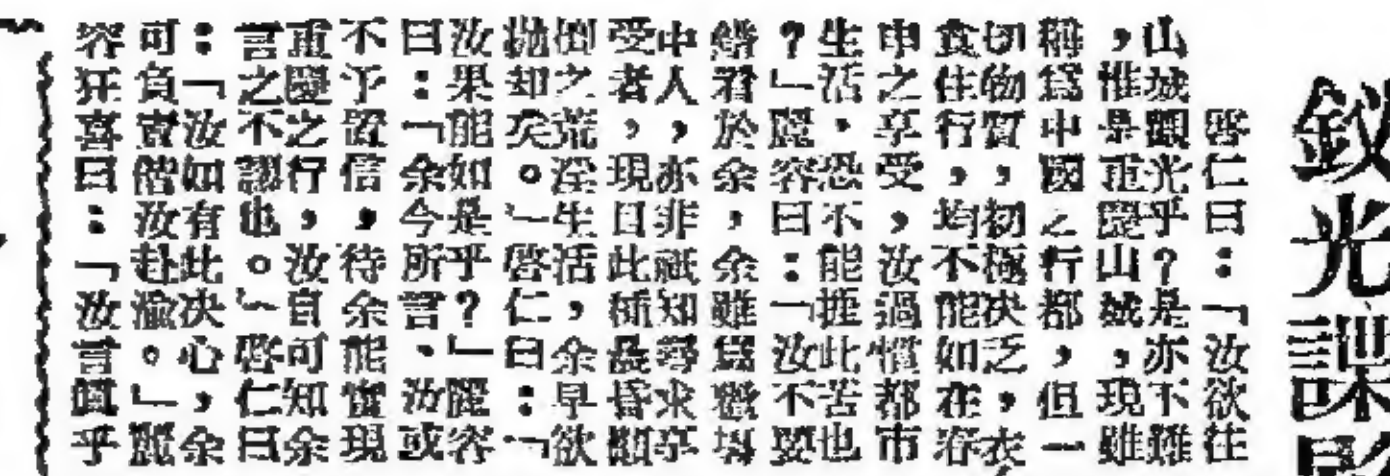 釵光諜
啓仁曰：「汝欲往
山城觀光乎？是亦不難
，惟是重慶山城，現雖
稱爲中國之行都，但一
切物質，切極決乏，衣
食住行，均不能如在春
申之享受，汝過慣都市
生活，恐不能捱此苦也
？」麗容曰：「汝不要
錯看於余，余雖爲豔塲
中人，亦非祗知尋求享
受者，現目此種晨昏顚
倒之荒淫生活，余早欲
拋却矣。」啓仁曰：「
汝果能如是乎？」麗容
曰：「余今所言，汝或
不予置信，待余能實現
重慶之行，汝自可知余
言之不謬也。」啓仁曰
：「汝如有此决心，余
可負責偕汝赴渝。」麗
容狂喜曰：「汝言眞乎